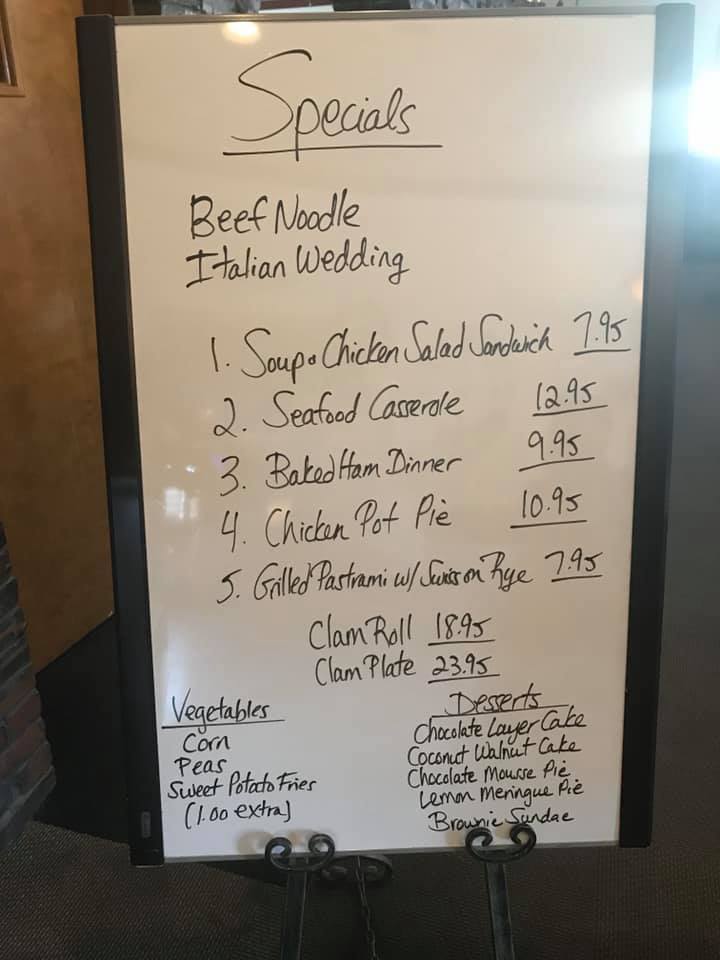 Specials
Beef Noodle
Italian Wedding
1. Soup & Chicken Salad Sandwich 7.95
2. Seafood Casserole 12.95
3. Baked Ham Dinner 9.95
4. Chicken Pot Pie 10.95
5. Grilled Pastrami w/ Swiss on Rye 7.95
Clam Roll 18.95
Clam Plate 23.95
Vegetables
Corn
Peas
Sweet Potato Fries
(1.00 extra)
Desserts
Chocolate Layer Cake
Coconut Walnut Cake
Chocolate Mousse Pie
Lemon Meringue Pie
Brownie Sundae